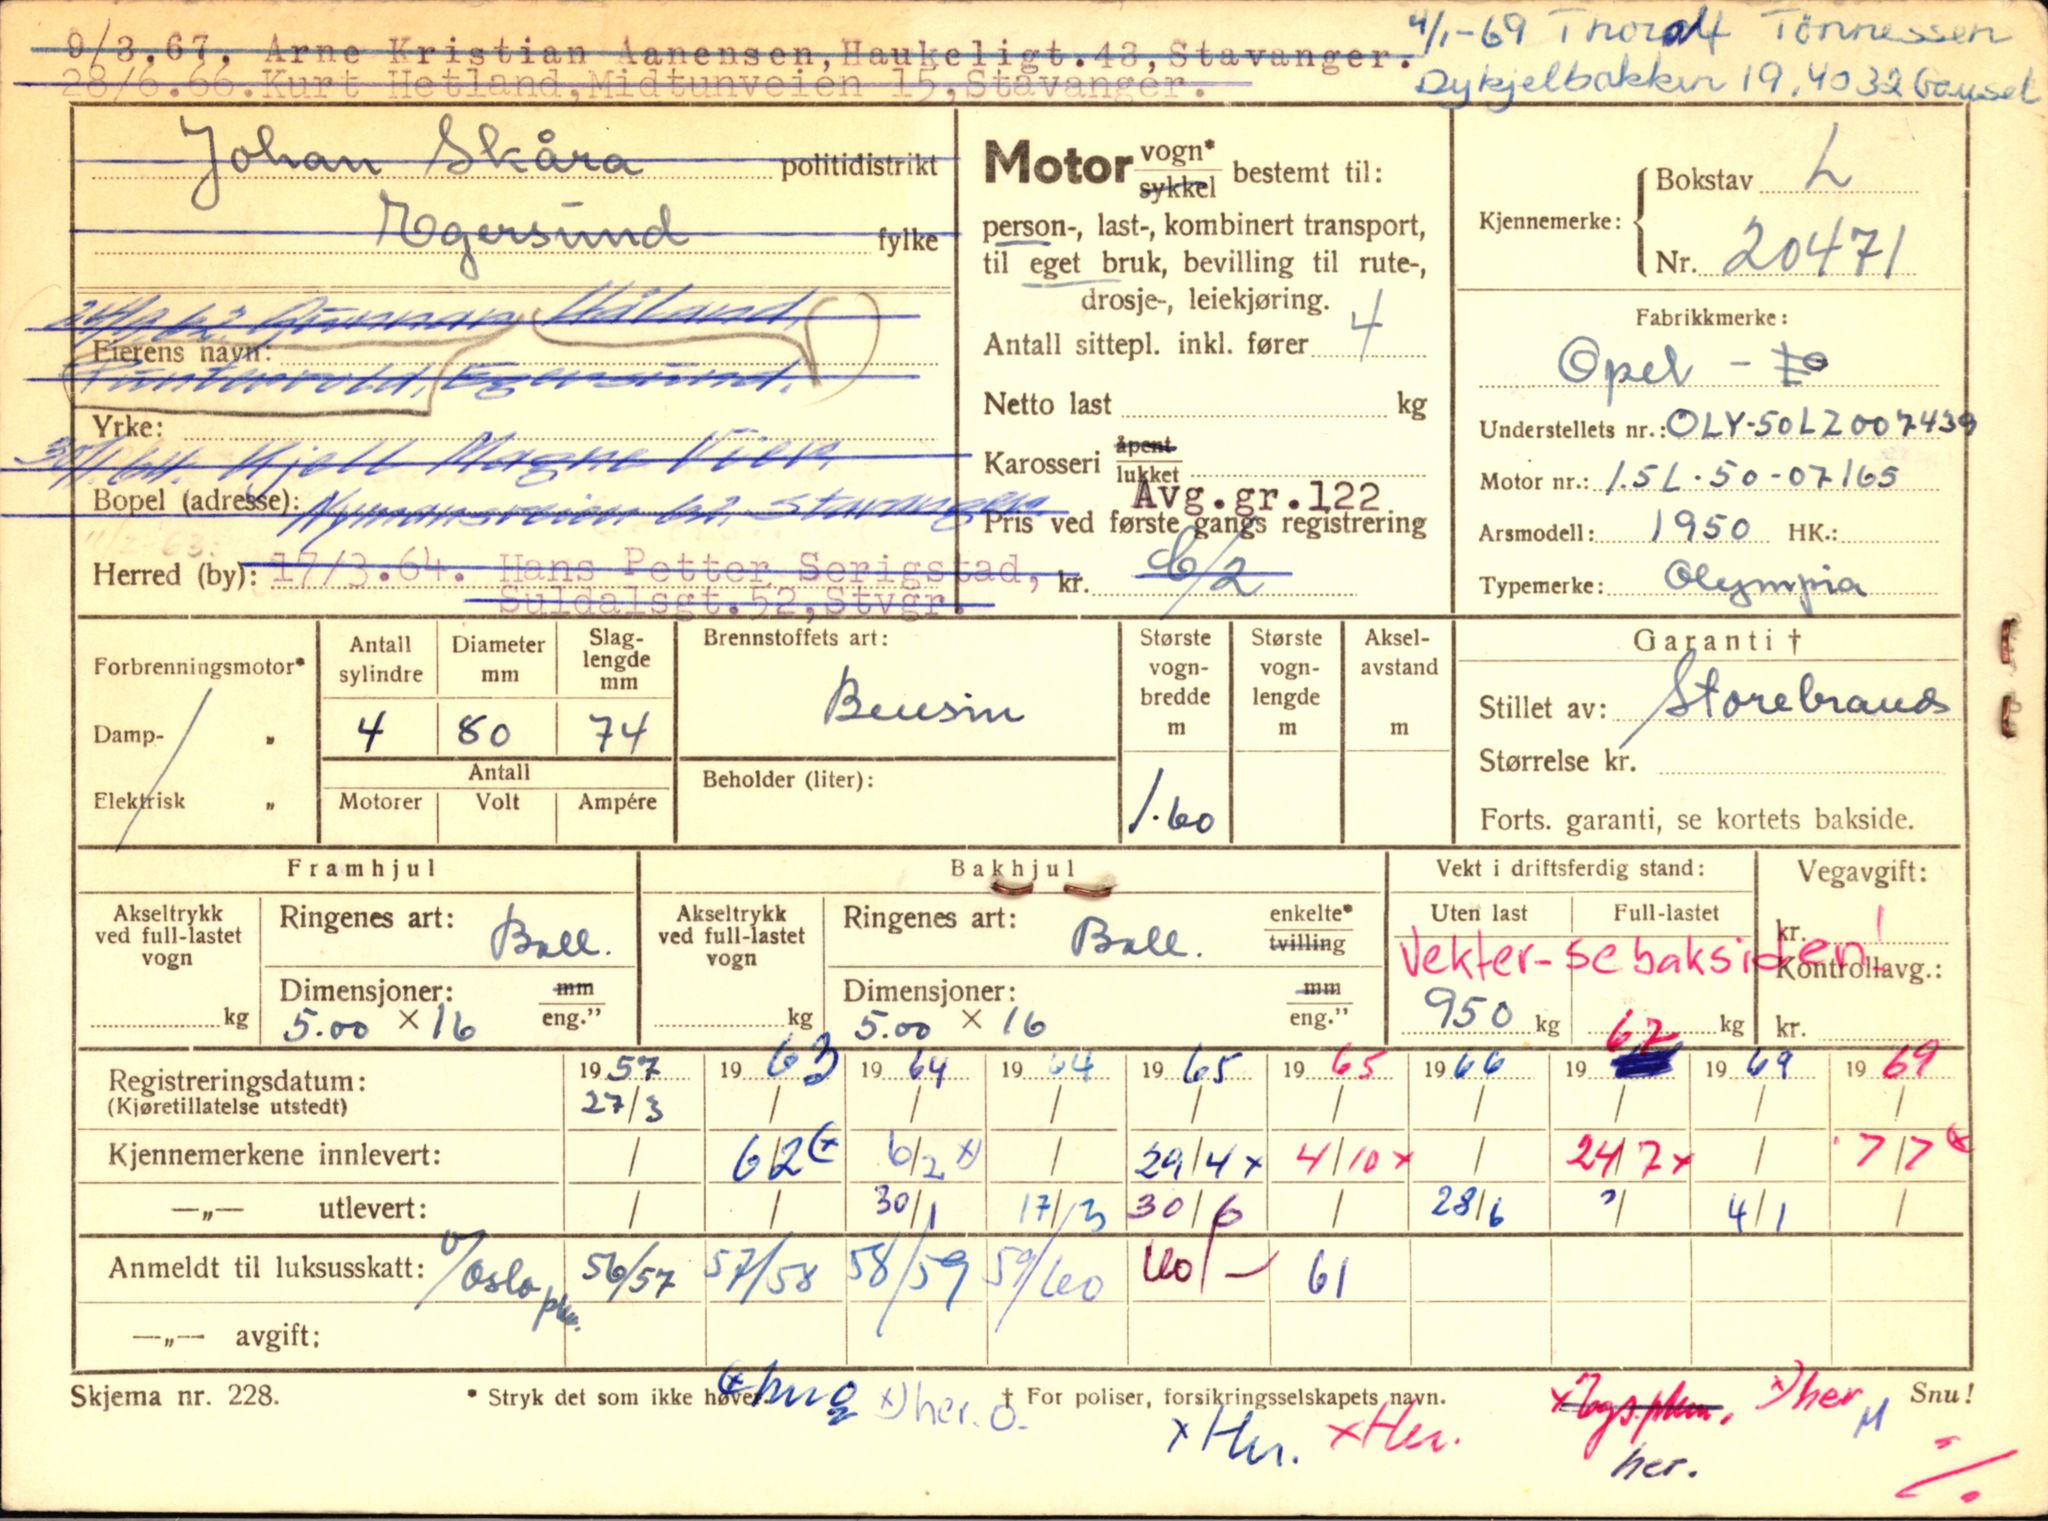 9/3.67. Arne Kristian Aanensen, Haukeligt.43, Stavanger.
28/6.66. Kurt Hetland, Midtunveien 15, Stavanger.
4/1-69 Thoralf Tönnessen
Dykjelbakken 19, 4032 Gausel
Johan Skåra politidistrikt
Egersund fylke
Gunnar Håland
Eierens navn:
Egersund.
Yrke:
30/1.64. Kjell Magne
Bopel (adresse): Nymansveien Stavanger
11/2-63.
Herred (by): 17/3.64. Hans Petter Serigstad,
Suldalsgt.52, Stvgr.
Motor vogn* sykkel bestemt til:
person-, last-, kombinert transport,
til eget bruk, bevilling til rute-,
drosje-, leiekjøring.
Antall sittepl. inkl. fører 4
Netto last kg
Karosseri åpent lukket
Avg.gr.122
Pris ved første gangs registrering
kr. 6/2
Kjennemerke: Bokstav L
Nr. 20471
Fabrikkmerke:
Opel
Understellets nr.: OLY-50LZ007439
Motor nr.: 1.5L.50-07165
Arsmodell: 1950 HK.:
Typemerke: Olympia
Forbrenningsmotor*
Damp- „
Elektrisk „
Antall sylindre
Diameter mm
Slag-lengde mm
4 80 74
Antall
Motorer Volt Ampére
Brennstoffets art:
Bensin
Beholder (liter):
Største vogn-bredde m
Største vogn-lengde m
Aksel-avstand m
1.60
Garanti †
Stillet av: Storebrand
Størrelse kr.
Forts. garanti, se kortets bakside.
Framhjul
Akseltrykk ved full-lastet vogn
kg
Ringenes art: Ball.
Dimensjoner: mm eng."
5.00 × 16
Bakhjul
Akseltrykk ved full-lastet vogn
kg
Ringenes art: Ball. enkelte* tvilling
Dimensjoner: mm eng."
5.00 × 16
Vekt i driftsferdig stand:
Uten last Full-lastet
Vekter-se baksiden!
950 kg kg
Vegavgift:
kr.
Kontrollavg.:
kr.
Registreringsdatum: 1957 1963 1964 1964 1965 1965 1966 1967 1969 1969
(Kjøretillatelse utstedt) 27/3 / / / / / / / / /
Kjennemerkene innlevert: / 6/2 (x 6/2 x) / 29/4 x 4/10 x / 24/7 x / 7/7 (x
—„— utlevert: / / 30/1 17/3 30/6 / 28/6 / 4/1 /
Anmeldt til luksusskatt: Oslo 56/57 57/58 58/59 59/60 60/- 61
—„— avgift:
Skjema nr. 228.
* Stryk det som ikke høver.
† For poliser, forsikringsselskapets navn.
Snu!
x) her. O.
x Her.
x Her.
her.
x) her